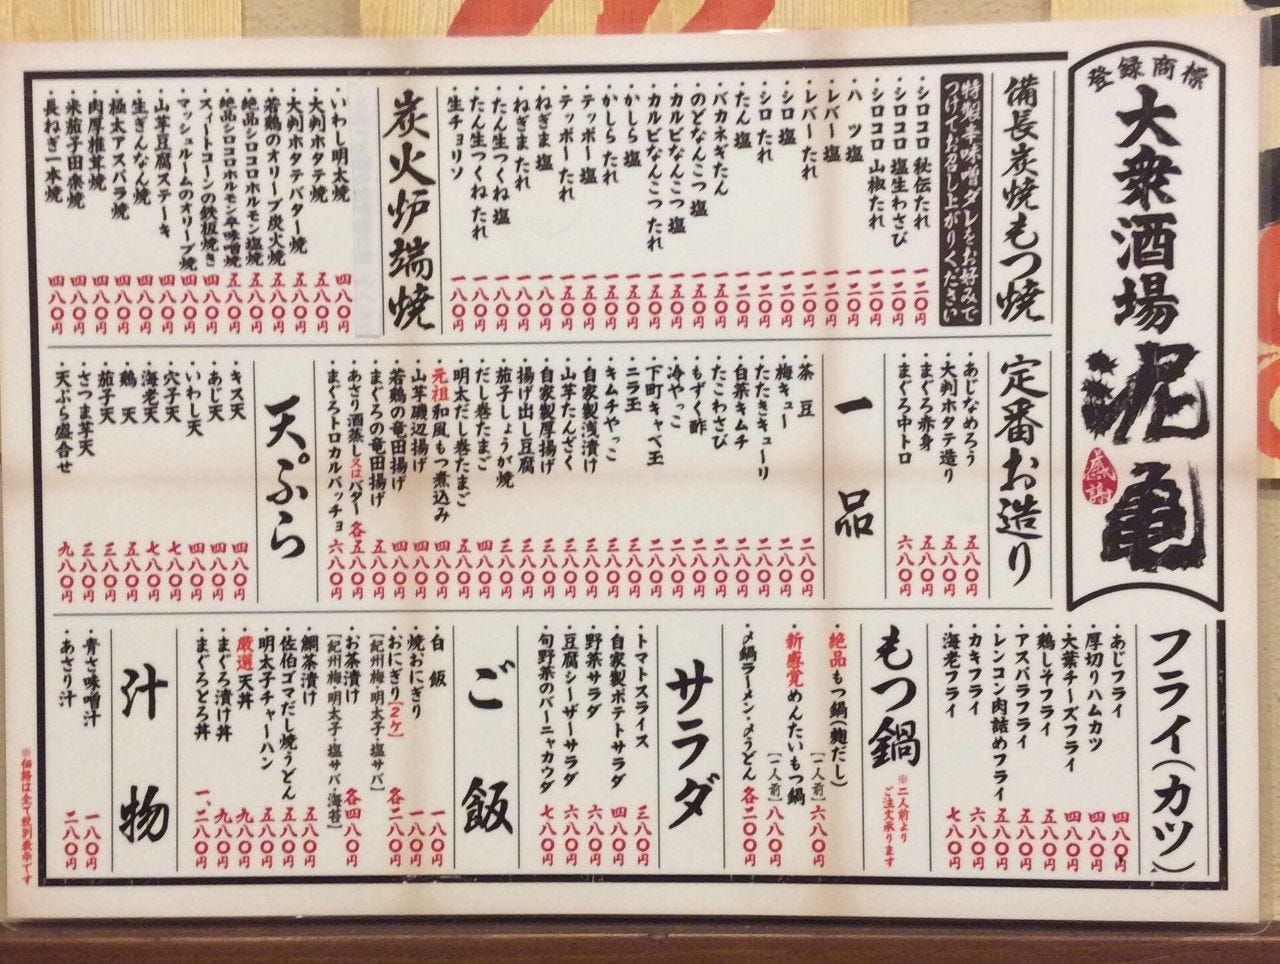 登録商標
大衆酒場
泥亀
感謝
備長炭焼もつ焼
特製辛味噌ダレをお好みで
つけてお召し上がりください
・シロコロ 秘伝たれ 一二〇円
・シロコロ 塩生わさび 一二〇円
・シロコロ 山椒たれ 一二〇円
・ハツ塩 一二〇円
・レバー塩 一二〇円
・レバーたれ 一二〇円
・シロ塩 一二〇円
・シロたれ 一二〇円
・たん塩 一二〇円
・バカネぎたん 一五〇円
・のどなんこつ塩 一五〇円
・カルビなんこつ塩 一五〇円
・カルビなんこつたれ 一五〇円
・かしら塩 一五〇円
・かしらたれ 一五〇円
・テッポー塩 一五〇円
・テッポーたれ 一五〇円
・ねぎま塩 一八〇円
・ねぎまたれ 一八〇円
・たん生つくね塩 一八〇円
・たん生つくねたれ 一八〇円
・生チョリソ 一八〇円
炭火炉端焼
・いわし明太焼 四八〇円
・大判ホタテ焼 五八〇円
・大判ホタテバター焼 五八〇円
・若鶏のオリーブ炭火焼 五八〇円
・絶品シロコロホルモン塩焼 五八〇円
・絶品シロコロホルモン辛味噌焼 五八〇円
・スィートコーンの鉄板焼き 四八〇円
・マッシュルームのオリーブ焼 四八〇円
・山芋豆腐ステーキ 四八〇円
・生ぎんなん焼 四八〇円
・極太アスパラ焼 四八〇円
・肉厚椎茸焼 四八〇円
・米茄子田楽焼 四八〇円
・長ねぎ一本焼 四八〇円
定番お造り
・あじなめろう 五八〇円
・大判ホタテ造り 五八〇円
・まぐろ赤身 五八〇円
・まぐろ中トロ 六八〇円
一品
・茶豆 二八〇円
・梅キュー 二八〇円
・たたきキューリ 二八〇円
・白菜キムチ 二八〇円
・たこわさび 二八〇円
・もずく酢 二八〇円
・冷やっこ 二八〇円
・下町キャベ玉 二八〇円
・ニラ玉 三八〇円
・キムチやっこ 三八〇円
・自家製浅漬け 三八〇円
・山芋たんざく 三八〇円
・自家製厚揚げ 三八〇円
・揚げ出し豆腐 三八〇円
・茄子しょうが焼 三八〇円
・だし巻たまご 四八〇円
・明太だし巻たまご 五八〇円
・元祖和風もつ煮込み 四八〇円
・山芋磯辺揚げ 四八〇円
・若鶏の竜田揚げ 四八〇円
・まぐろの竜田揚げ 五八〇円
・あさり酒蒸し又はバター 各五八〇円
・まぐろトロカルパッチョ 六八〇円
天ぷら
・キス天 四八〇円
・あじ天 四八〇円
・いわし天 四八〇円
・穴子天 七八〇円
・海老天 七八〇円
・鶏天 五八〇円
・茄子天 三八〇円
・さつま芋天 三八〇円
・天ぷら盛合せ 九八〇円
フライ(カツ)
・あじフライ 四八〇円
・厚切りハムカツ 四八〇円
・大葉チーズフライ 四八〇円
・鶏しそフライ 五八〇円
・アスパラフライ 五八〇円
・レンコン肉詰めフライ 五八〇円
・カキフライ 六八〇円
・海老フライ 七八〇円
もつ鍋
※二人前より
ご注文承ります
・絶品もつ鍋(麹だし) [一人前] 六八〇円
・新感覚めんたいもつ鍋 [一人前] 八八〇円
・〆鍋ラーメン・〆うどん 各二〇〇円
サラダ
・トマトスライス 三八〇円
・自家製ポテトサラダ 四八〇円
・野菜サラダ 六八〇円
・豆腐シーザーサラダ 六八〇円
・旬野菜のバーニャカウダ 七八〇円
ご飯
・白飯 一八〇円
・焼おにぎり 一八〇円
・おにぎり[2ケ] 各二八〇円
[紀州梅・明太子・塩サバ]
・お茶漬け 各四八〇円
[紀州梅・明太子・塩サバ・海苔]
・鯛茶漬け 五八〇円
・佐伯ゴマだし焼うどん 五八〇円
・明太子チャーハン 五八〇円
・厳選天丼 九八〇円
・まぐろ漬け丼 九八〇円
・まぐろとろ丼 一、二八〇円
汁物
・青さ味噌汁 一八〇円
・あさり汁 二八〇円
※価格は全て税別表示です